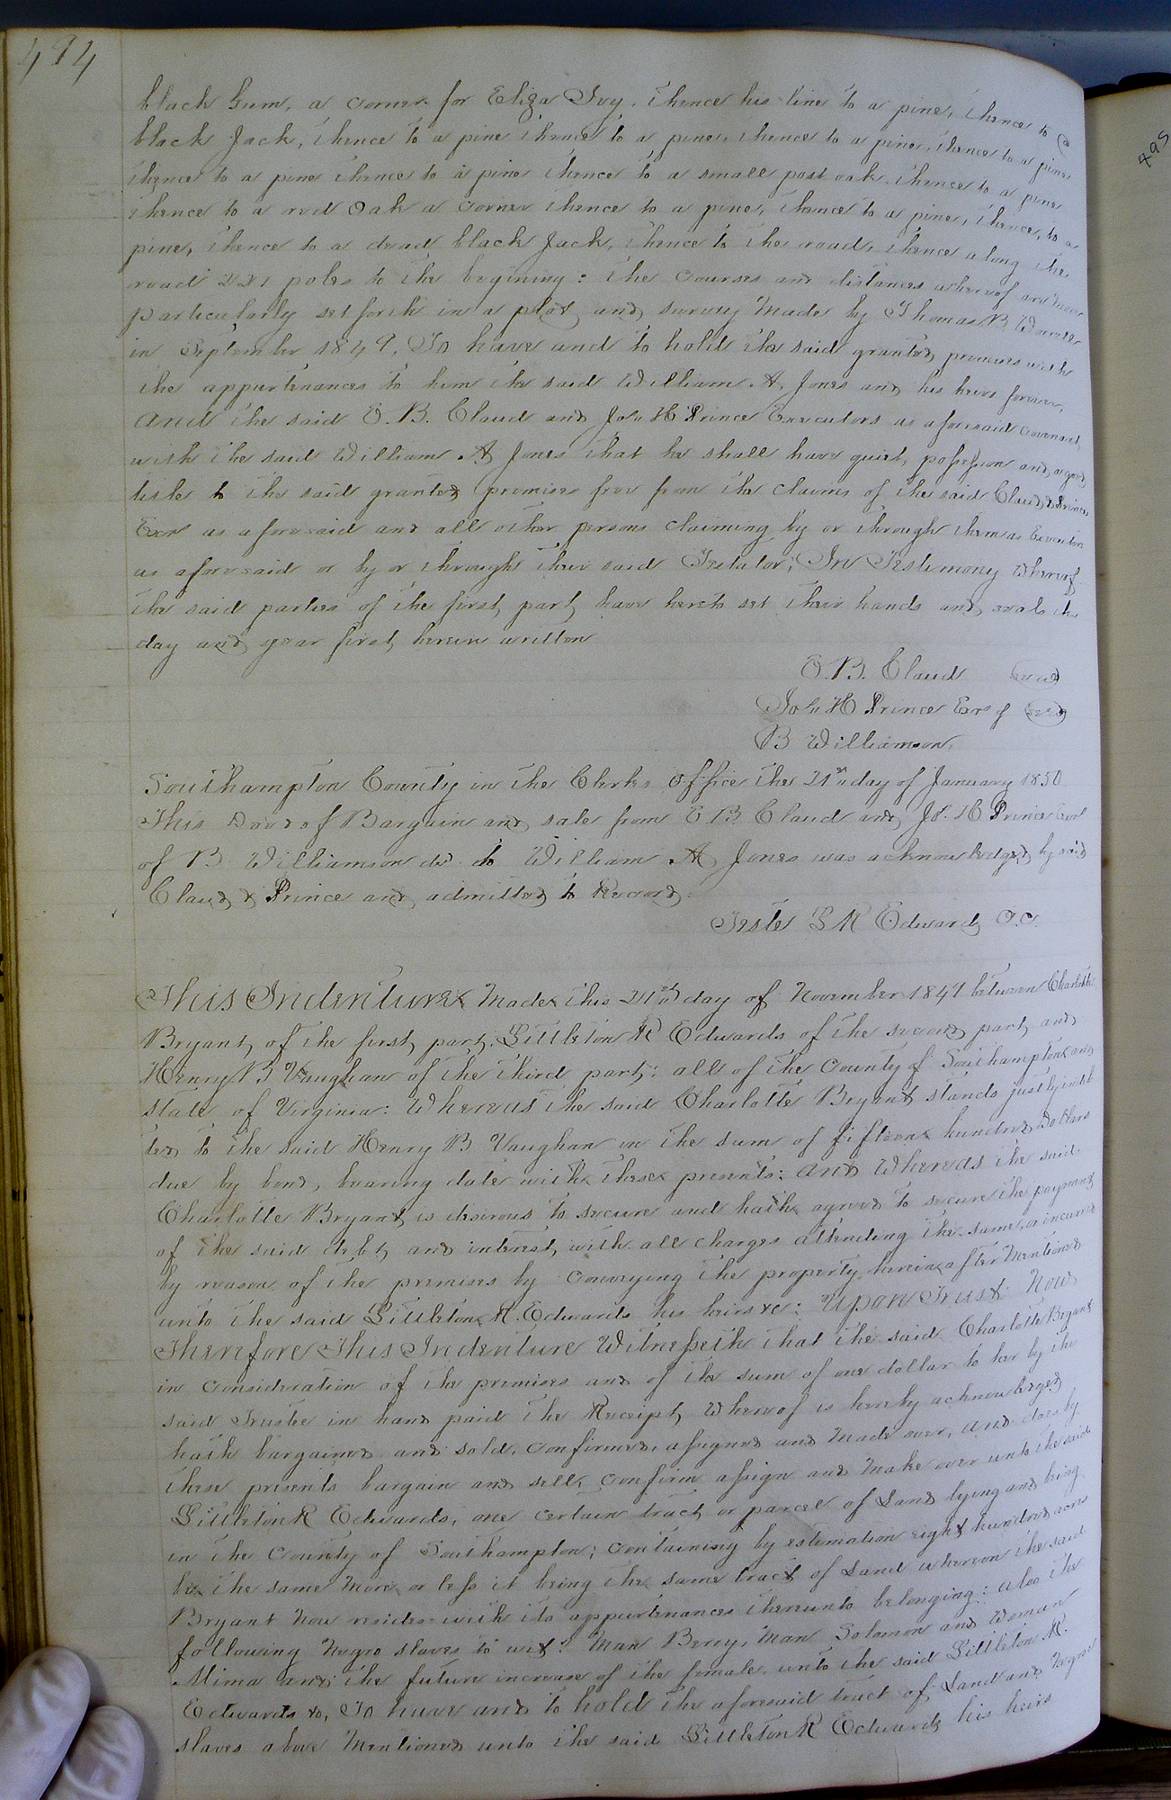 494
black Gum, a corner for Eliza Ivy. thence his line to a pine, thence to a
black Jack, thence to a pine thence to a pine, thence to a pine, thence to a pine
thence to a pine thence to a pine thence to a small post oak thence to a pine
thence to a red Oak a corner thence to a pine, thence to a pine, thence, to a
pine, thence to a dead black Jack, thence to the road, thence along the
road 221 poles to the begining: the courses and distances whereof are more
particularly set forth in a plot and survey made by Thomas B. Warren
in September 1849. To have and to hold the said granted premises with
the appurtenances to him the said William A. Jones and his heirs forever,
And the said E. B. Claud and Jos. H Prince Executors as aforesaid covenant,
with the said William A Jones that he shall have quiet, possession and, a good
title to the said granted premises free from the claims of the said Claud & Prince
Exor as aforesaid and all other persons claiming by or through them as Executors
as aforesaid or by or through their said Testator; In Testimony Whereof
the said parties of the first part have hereto set their hands and seals the
day and year first herein written
E. B. Claud seal
Jos. H Prince Exrs of seal
B Williamson.
Southampton County in the Clerks Office the 21st day of January 1850
This Deed of Bargain and sale from E B Claud and Jos. H Prince Exors
of B. Williamson dec to William A Jones was acknowledged by said
Claud & Prince and admitted to Record.
Teste L R Edwards C.C.
This Indenture Made this 21st day of November 1849 between Charlotte
Bryant of the first part, Littleton R Edwards of the second part and
Henry B Vaughan of the third part: all of the County of Southampton and
state of Virginia: Whereas the said Charlotte Bryant stands justly indeb
ted to the said Henry B Vaughan in the sum of fifteen hundred Dollars
due by bond, bearing date with these presents: And Whereas the said
Charlotte Bryant is desirous to secure and hath agreed to secure the payment
of the said debt, and interest, with all charges attending the same, a incurred
by reason of the premises by conveying the property hereinafter Mentioned
unto the said Littleton R. Edwards his heirs &c: Upon Trust. Now
Therefore This Indenture Witnesseth that the said Charlotte Bryant
in consideration of the premises and of the sum of one dollar to her by the
said Trustee in hand paid the Receipt, Whereof is hereby acknowledged
hath bargained and sold, confirmed, assigned and Made over, and does by
these presents bargain and sell, confirm assign and Make over unto the said
Littleton R Edwards, one certain tract or parcel of Land lying and being
in the County of Southampton; containing by estemation eight hundred acres
be the same More or less it being the same tract of Land whereon the said
Bryant Now resides with its appurtenances thereunto belonging: also the
following Negro slaves to wit: Man Berry, Man Solomon and Woman
Mima and the future increase of the female unto the said Littleton R.
Edwards &c, To have and to hold the aforesaid tract of Land and Negro
slaves above Mentioned unto the said Littleton R Edwards his heirs
495